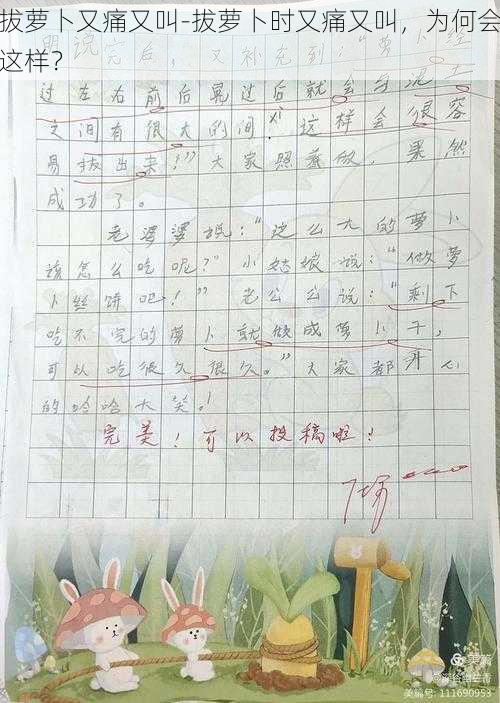 拔萝卜又痛又叫-拔萝卜时又痛又叫，为何会
这样？
明说完后，又补充到："萝卜经
过左右前后晃过后就会与泥土
之间有很大的间，这样会很容
易拔出来！"大家照着做，果然
成功了。
老婆婆说："这么大的萝卜
该怎么吃呢？"小姑娘说："做萝
卜丝饼吧！"老公公说："剩下
吃不完的萝卜就做成萝卜干，
可以吃很久很久。"大家都开心
的哈哈大笑。！
完美！可以投稿啦！
美篇
@深谷幽兰香
美编号: 111690953